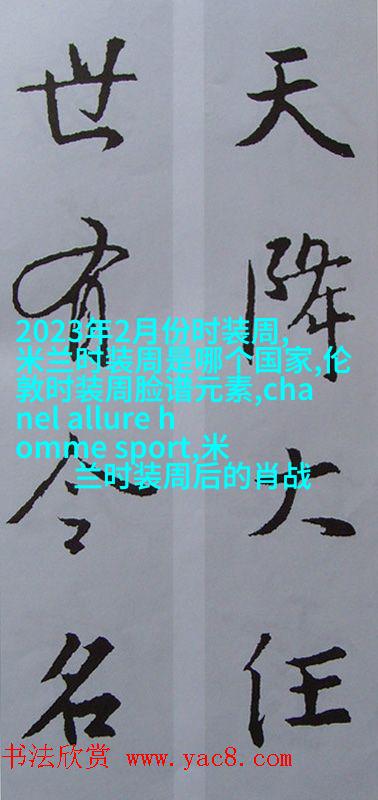 天降大任
世有令名
2023年2月份时装周,
米兰时装周是哪个国家,伦
敦时装周脸谱元素,cha
nel allure h
omme sport,米
兰时装周后的肖战
书法欣赏 www.yac8.com